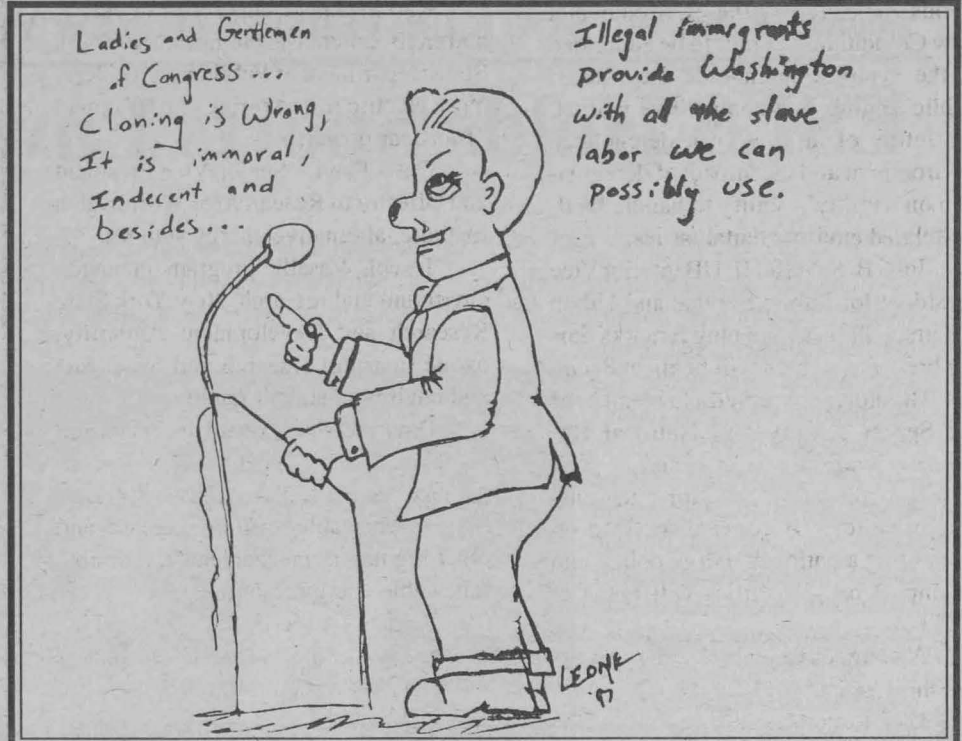 Ladies and Gentlemen
of Congress...
Cloning is Wrong,
It is immoral,
Indecent and
besides...
Illegal immigrants
provide Washington
with all the slave
labor we can
possibly use.
LEDNK